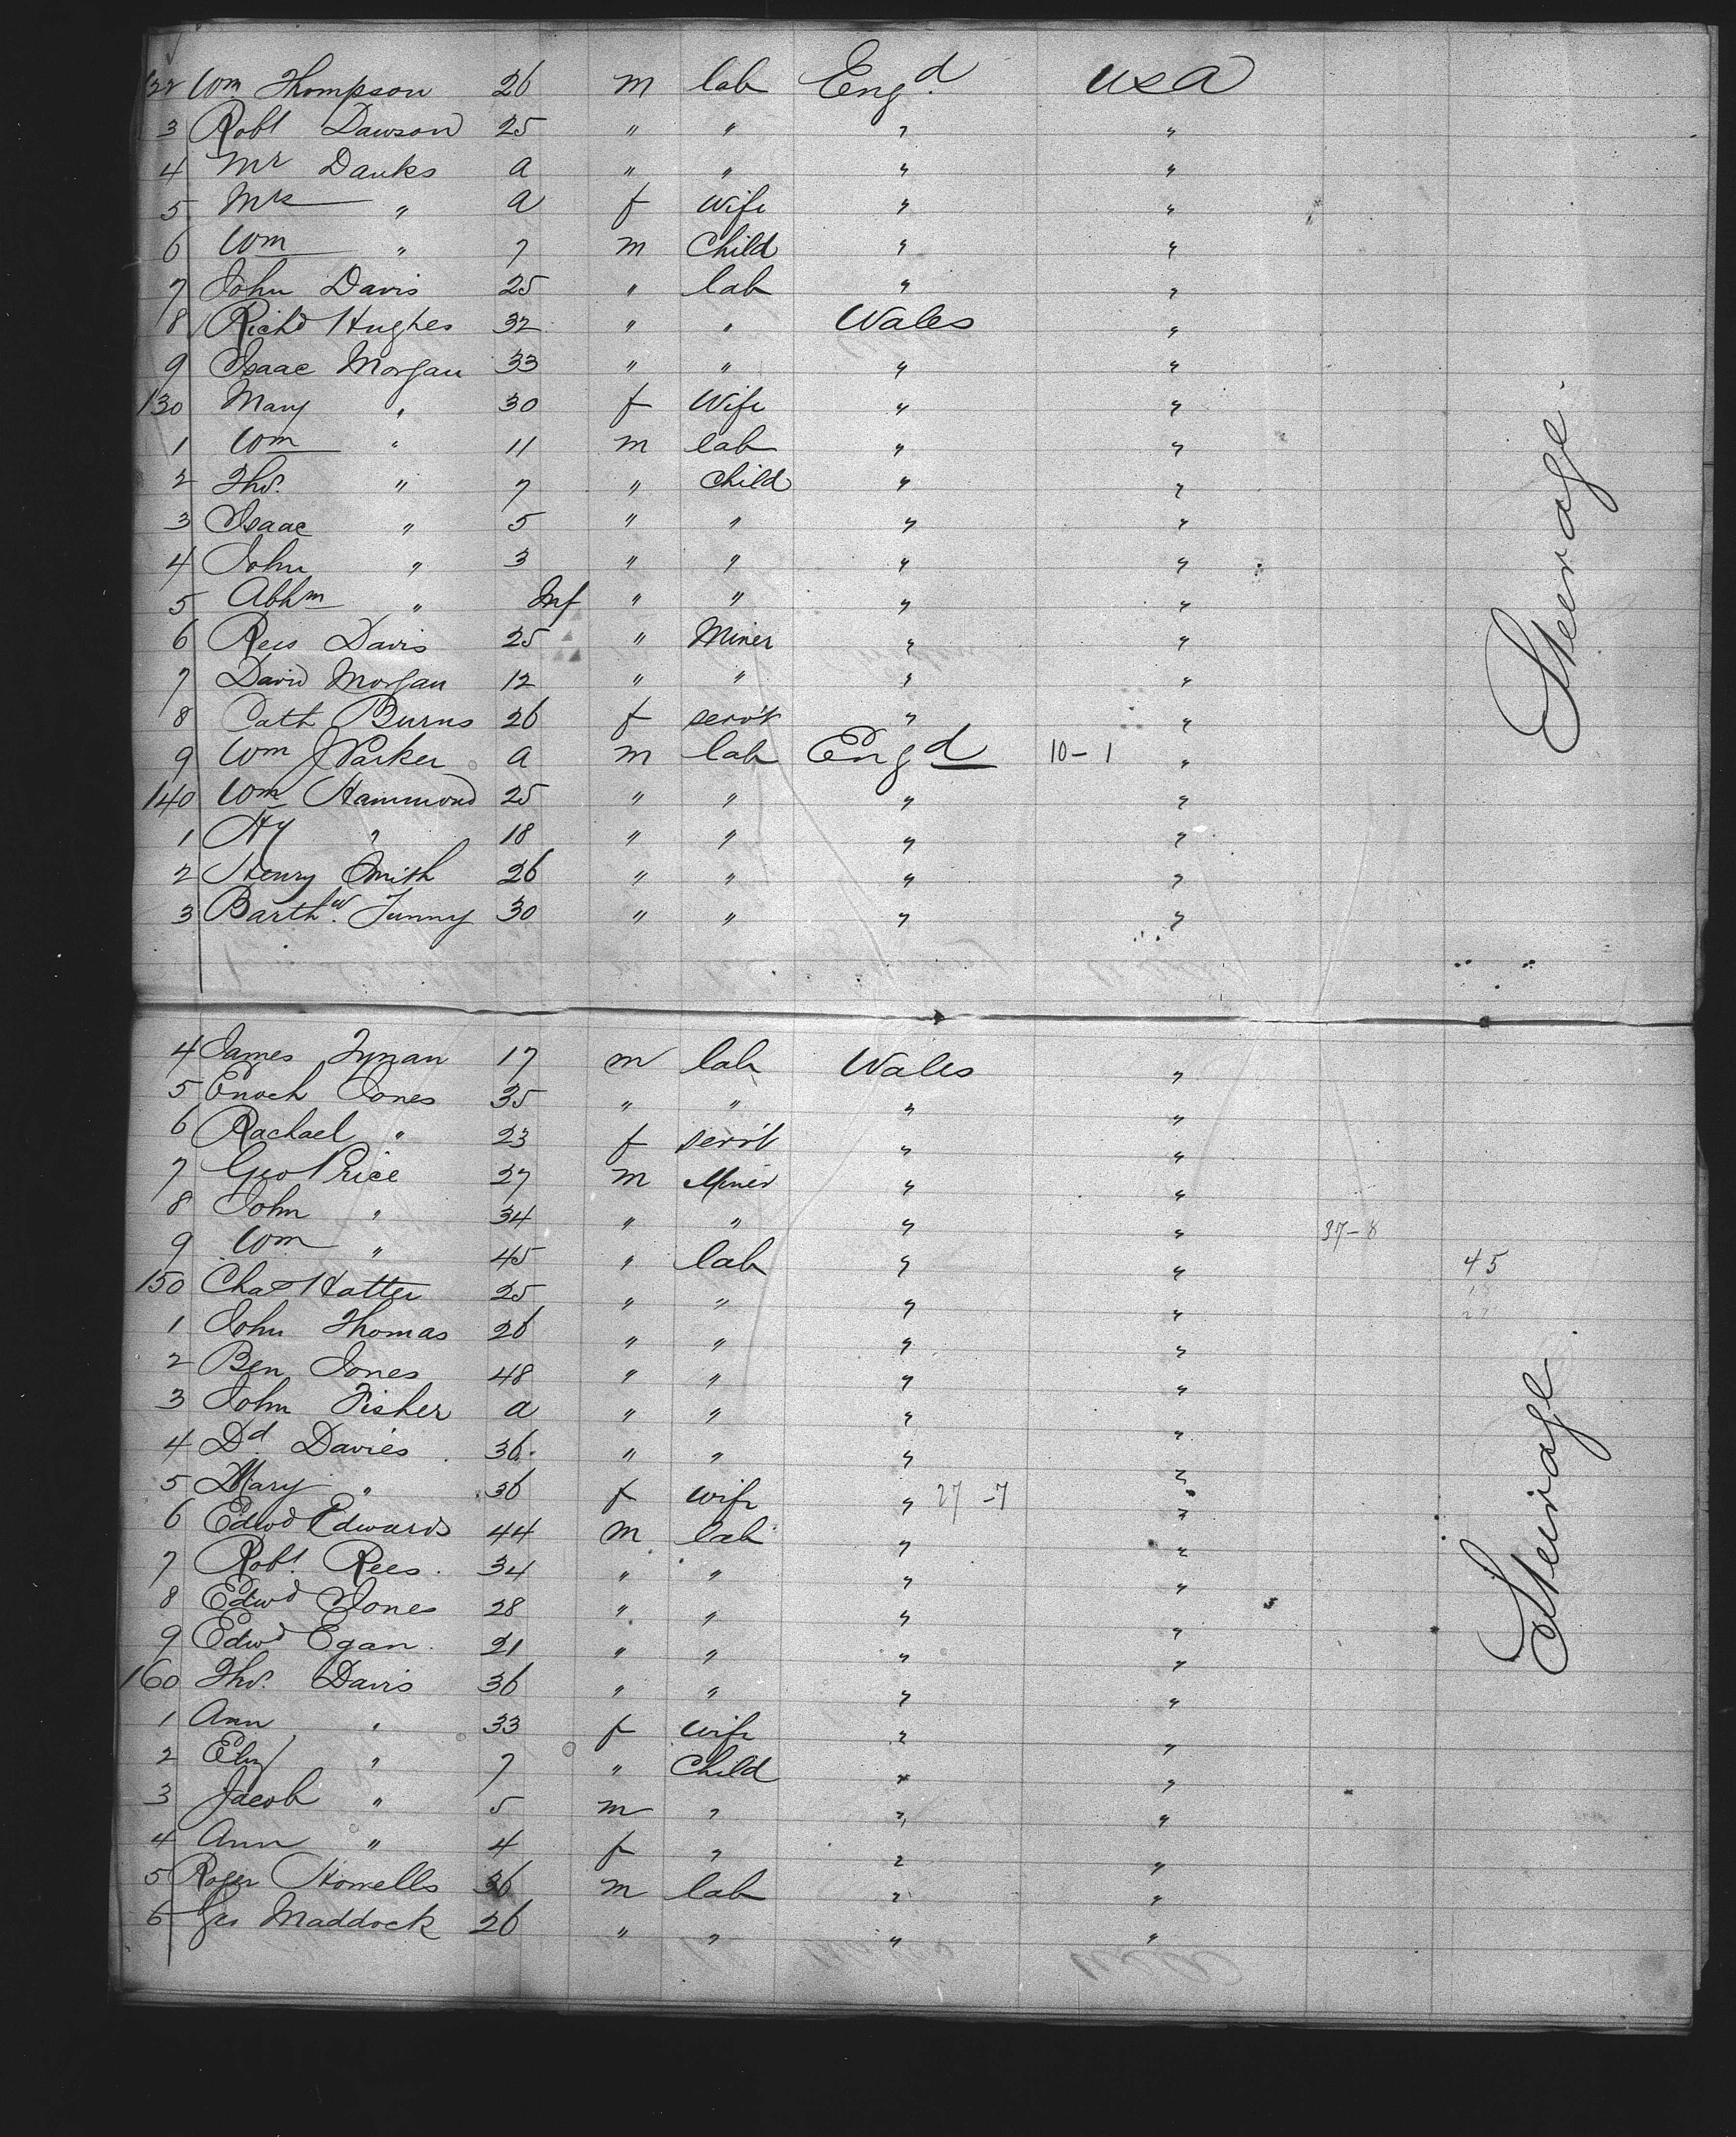 122 Wm Thompson 26 m lab Engd. USA
3 Robt Dawson 25 " " " "
4 Mr Danks a " " " "
5 Mrs " a f wife " "
6 Wm " 7 m Child " "
7 John Davis 25 " lab " "
8 Richd Hughes 32 " " Wales "
9 Isaac Morgan 33 " " " "
130 Mary " 30 f Wife " "
1 Wm " 11 m lab " "
2 Thos. " 7 " child " "
3 Isaac " 5 " " " "
4 John " 3 " " " "
5 Abhm " Inf " " " "
6 Rees Davis 25 " Miner " "
7 David Morgan 12 " " " "
8 Cath Burns 26 f serv't " "
9 Wm J Parker a m lab Engd 10-1 "
140 Wm Hammond 25 " " " "
1 Hy " 18 " " " "
2 Henry Smith 26 " " " "
3 Barthw. Tunny 30 " " " "
Steerage.
4 James Tynan 17 m lab Wales "
5 Enoch Jones 35 " " " "
6 Rachael " 23 f serv't " "
7 Geo Price 27 m Miner " "
8 John " 34 " " " " 37-8
9 Wm " 45 " lab " " 45
150 Chas Hatter 25 " " " "
1 John Thomas 26 " " " "
2 Ben Jones 48 " " " "
3 John Fisher a " " " "
4 Dd. Davies 36 " " " "
5 Mary " 36 f wife " 27-7 "
6 Edwd Edwards 44 m lab " "
7 Robt. Rees 34 " " " "
8 Edwd Jones 28 " " " "
9 Edwd Egan 21 " " " "
160 Thos. Davis 36 " " " "
1 Ann " 33 f wife " "
2 Eliz " 7 " Child " "
3 Jacob " 5 m " " "
4 Ann " 4 f " " "
5 Roger Howells 36 m lab " "
6 Geo Maddock 26 " " " "
Steerage